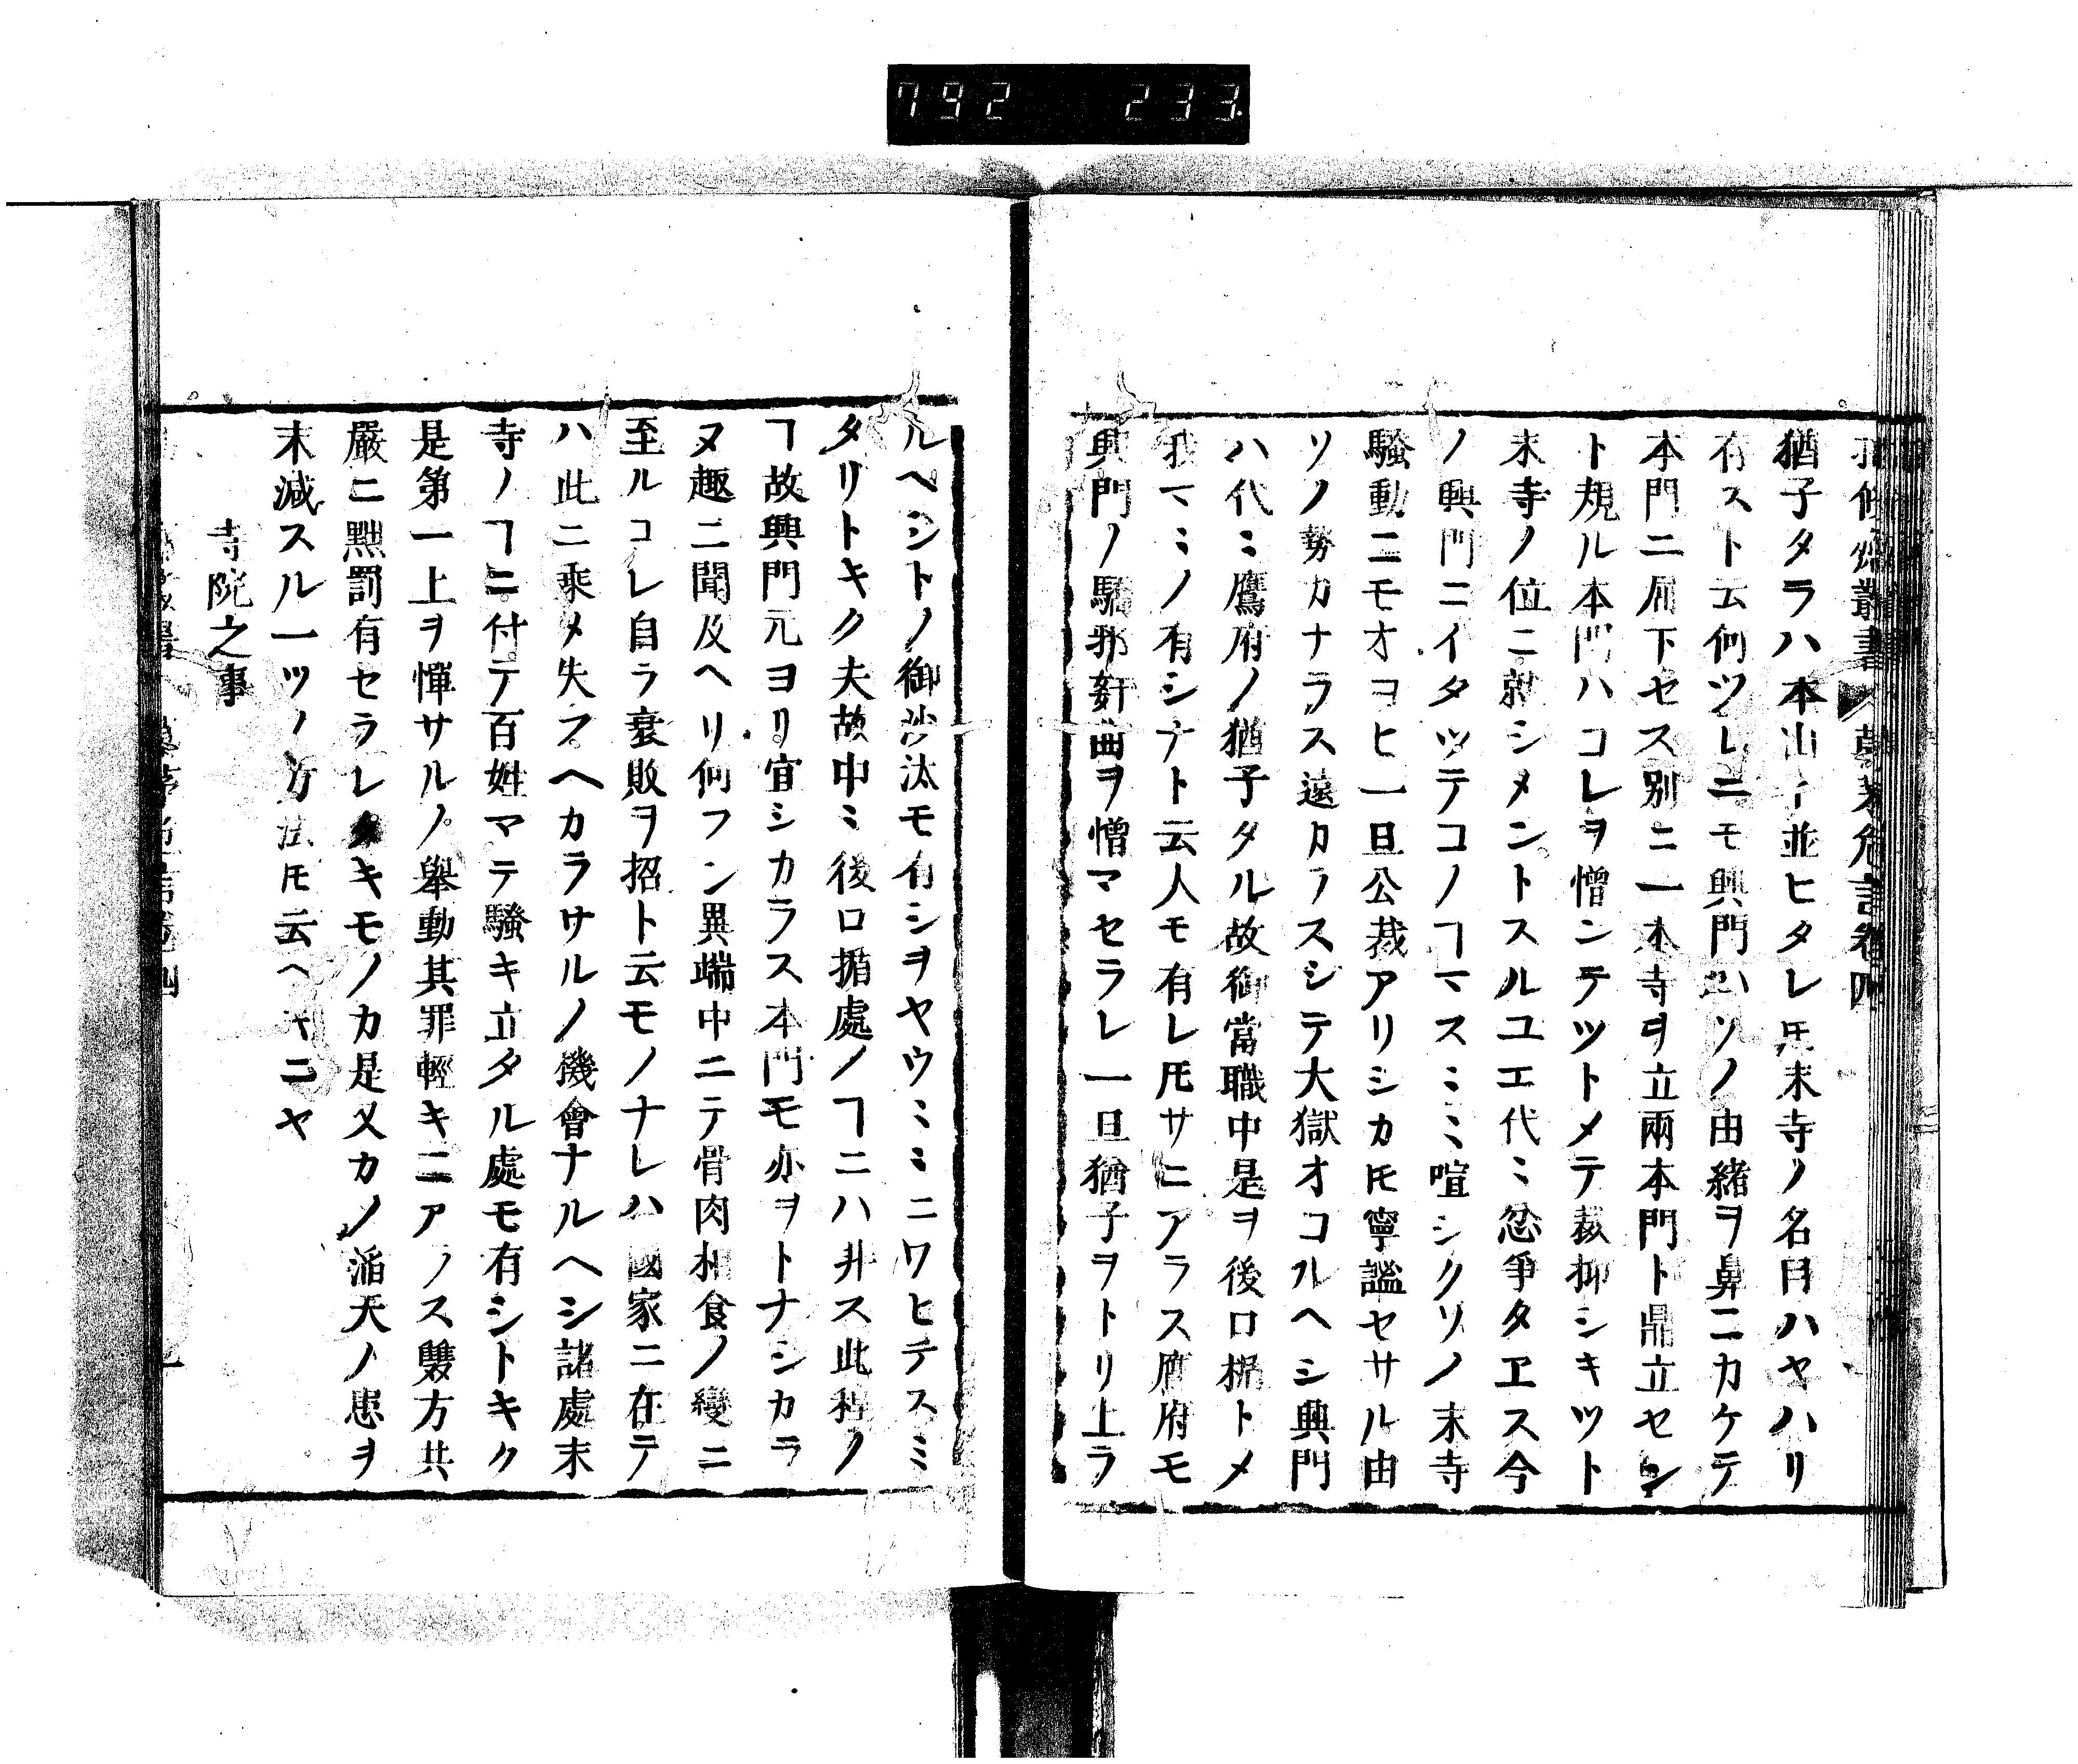 792 233
猶子タラハ本山ト並ヒタレ𪜈末寺ノ名目ハヤハリ
有スト云何ツレニモ興門ハソノ由緒ヲ鼻ニカケテ
本門ニ屑下セス別ニ一本寺ヲ立兩本門ト鼎立セン
ト規ル本門ハコレヲ憎ンテツトメテ裁抑シキツト
末寺ノ位ニ就シメントスルユエ代〻忿爭タヱス今
ノ興門ニイタツテコノヿマス〻〻喧シクソノ末寺
騒動ニモオヨヒ一旦公裁アリシカ𪜈寧謐セサル由
ソノ勢カナラス遠カラスシテ大獄オコルヘシ興門
ハ代〻鷹府ノ猶子タル故御當職中是ヲ後ロ楯トメ
我マヽノ有シナト云人モ有レ𪜈サニアラス鷹府モ
興門ノ驕邪姧曲ヲ憎マセラレ一旦猶子ヲトリ上ラ
ルヘシトノ御沙汰モ有シヲヤウ〻〻ニワヒテスミ
タリトキク夫故中〻後ロ楯處ノヿニハ非ス此程ノ
ヿ故興門元ヨリ宜シカラス本門モ亦ヲトナシカラ
ヌ趣ニ聞及ヘリ何フン異端中ニテ骨肉相食ノ變ニ
至ルコレ自ラ衰敗ヲ招ト云モノナレハ國家ニ在テ
ハ此ニ乘メ失フヘカラサルノ機會ナルヘシ諸處末
寺ノヿニ付テ百姓マテ騒キ立タル處モ有シトキク
是第一上ヲ憚サルノ舉動其罪輕キニアラス雙方共
嚴ニ黜罰有セラレタキモノカ是又カノ滔天ノ患ヲ
末減スル一ツノ方法𪜈云ヘキニヤ
寺院之事